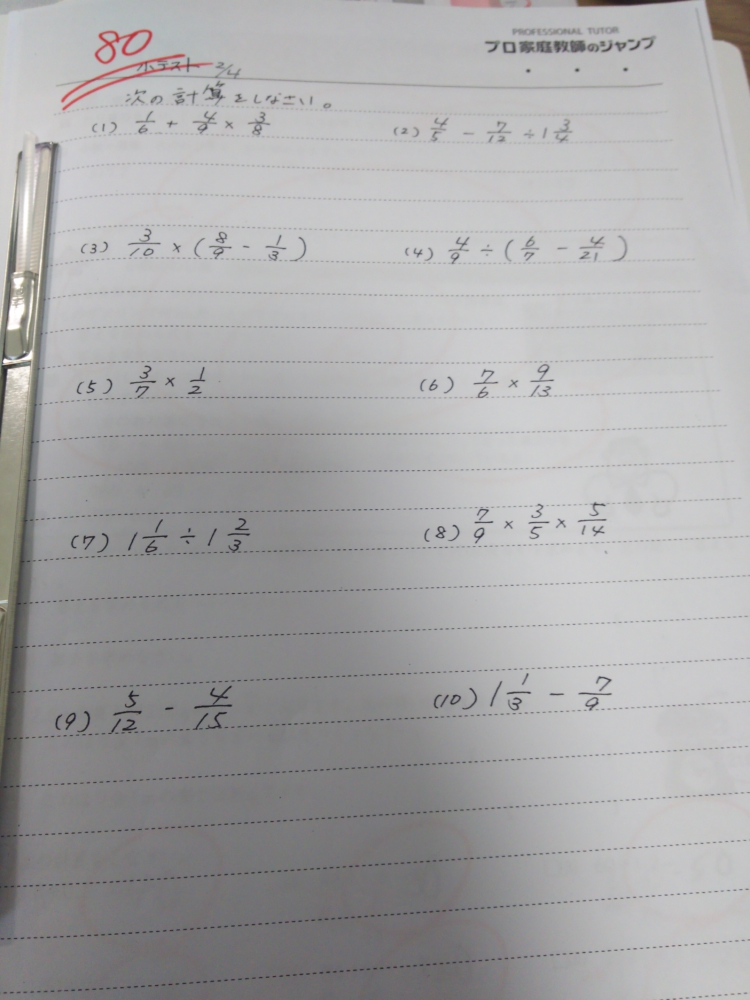 PROFESSIONAL TUTOR
プロ家庭教師のジャンプ
80
小テスト 2/4
次の計算をしなさい。
(1) 1/6 + 4/9 × 3/8 (2) 4/5 - 7/12 ÷ 1 3/4
(3) 3/10 × (8/9 - 1/3) (4) 4/9 ÷ (6/7 - 4/21)
(5) 3/7 × 1/2 (6) 7/6 × 9/13
(7) 1 1/6 ÷ 1 2/3 (8) 7/9 × 3/5 × 5/14
(9) 5/12 - 4/15 (10) 1 1/3 - 7/9